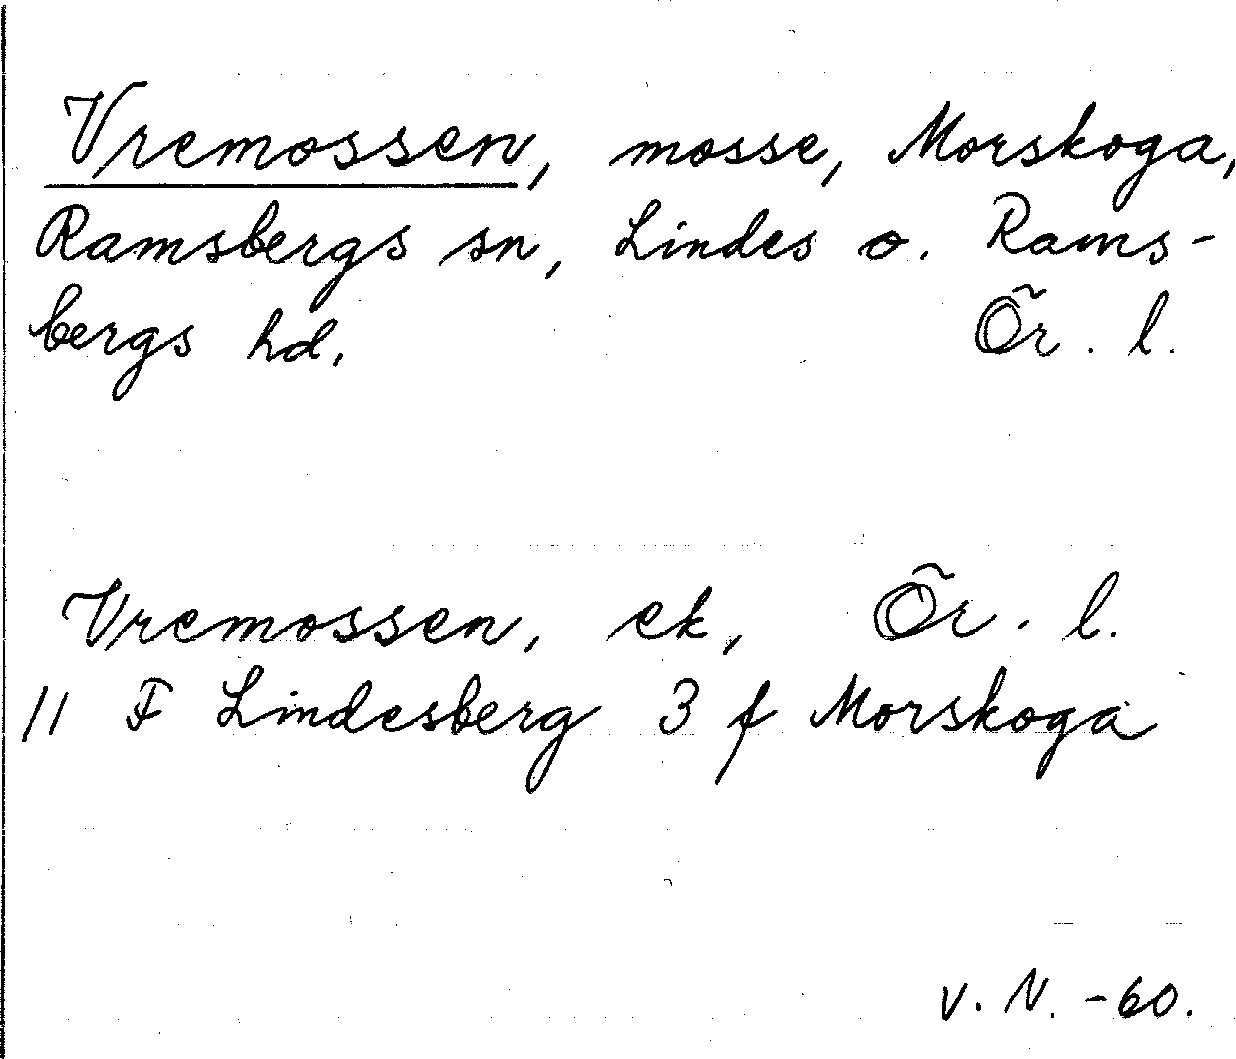 Vremossen, mosse, Morskoga,
Ramsbergs sn, Lindes o. Rams-
bergs hd. Ör. l.
Vremossen, ek, Ör. l.
11 F Lindesberg 3 f Morskoga
V. N. -60.